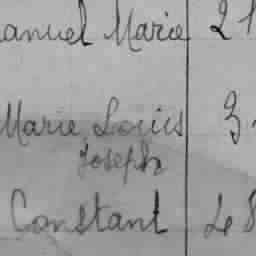 anuel Marie 21
Marie Louis 3
Joseph
Constant 48